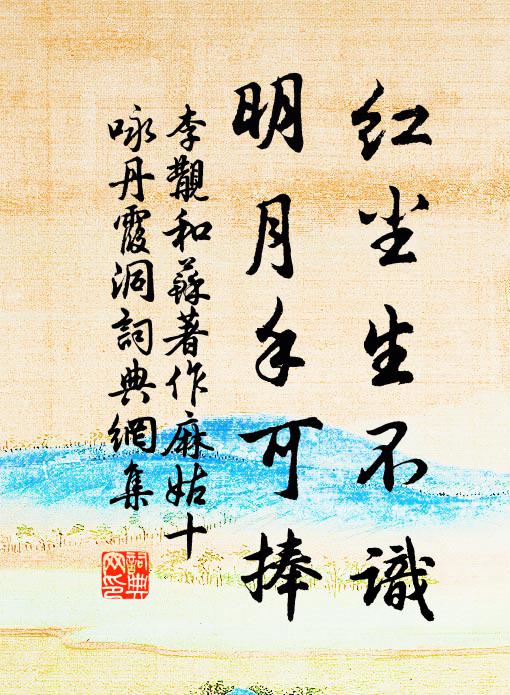 红尘生不識
明月手可捧
李覯和蘇著作麻姑十
咏丹霞洞詞典網集
詞典